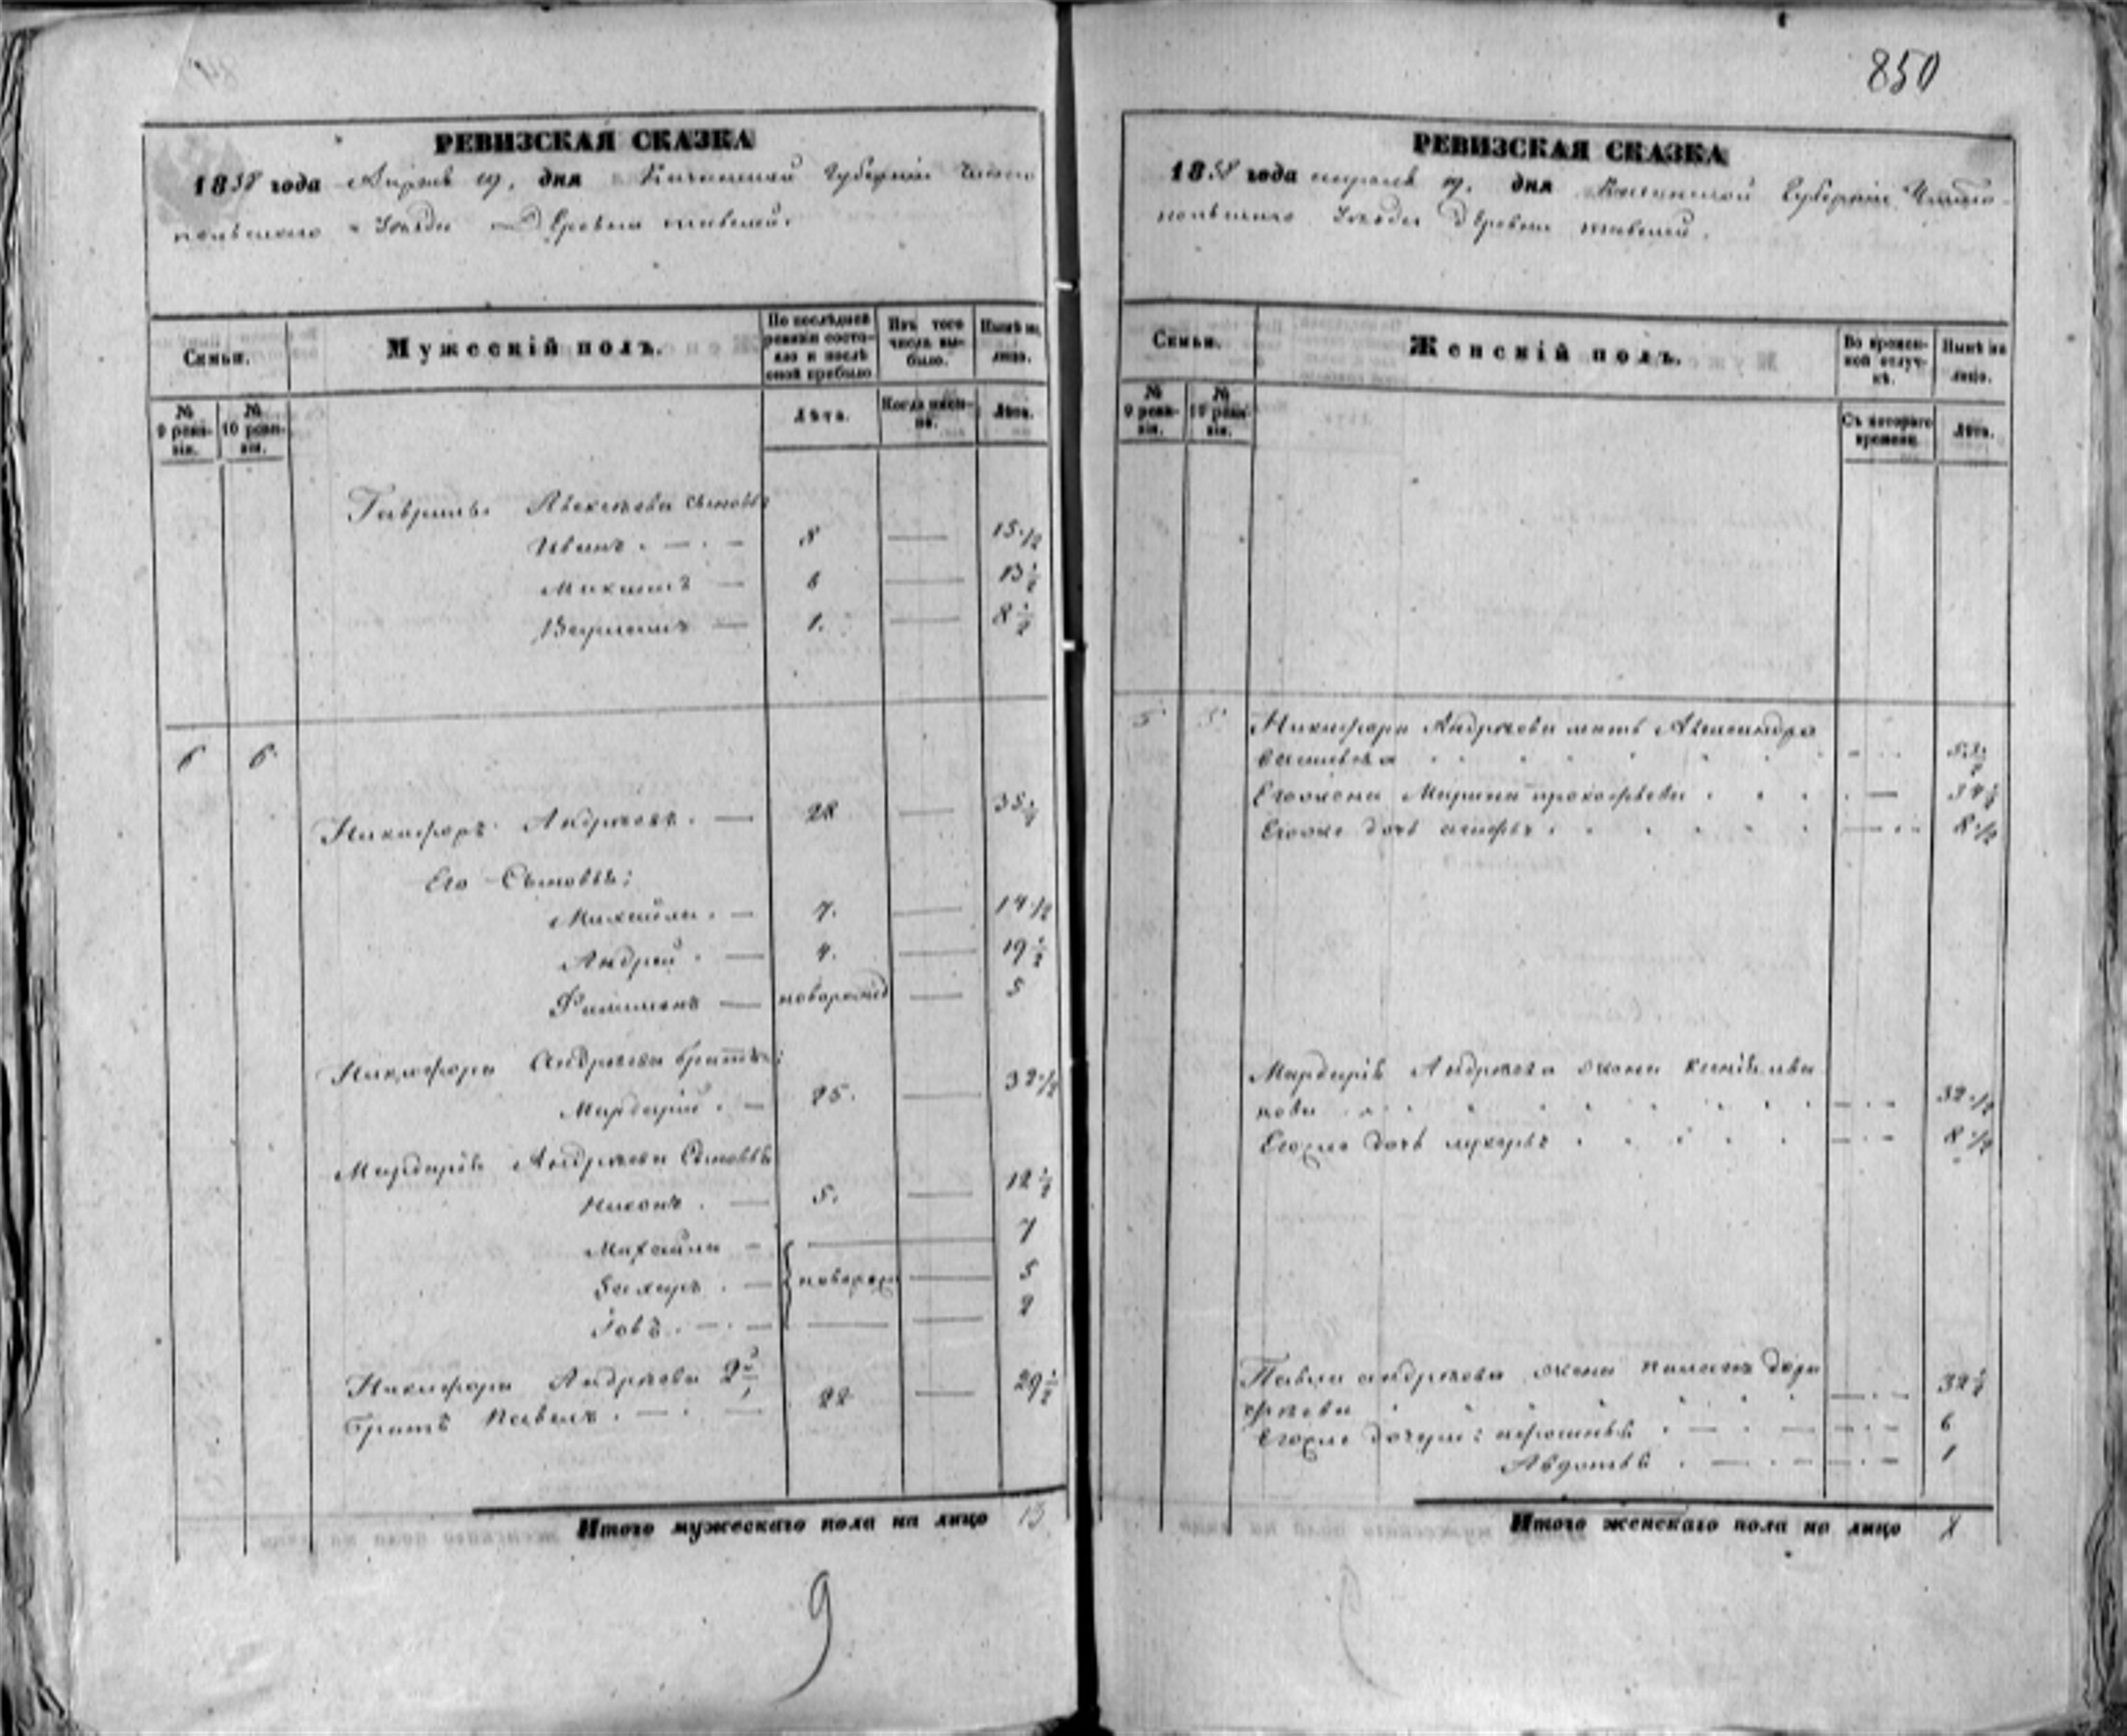 850
РЕВИЗСКАЯ СКАЗКА
1858 года Апреля 19, дня Казанской Губернии Чисто
польского Уезда Деревни
Семьи.
Мужескій полъ.
По послѣдней ревизіи состояло и послѣ оной прибыло
Изъ того числа выбыло.
Нынѣ на лицо.
№ 9 ревизіи.
№ 10 ревизіи.
Лѣта.
Когда именно.
Лѣта.
Гаврилы Алексѣева сыновья
Иванъ 8 15 1/2
Никита 6 13 1/2
1. 8 1/2
6 6
Никифоръ Андрѣевъ. 28 35 1/2
Его Сыновья:
Михайла. 7. 14 1/2
Андрей 4. 19 1/2
Филимонъ новорожд 5
Никифора Андрѣева братья:
Мардарій. 25. 32 1/2
Мардарія Андрѣева Сыновья
Никонъ. 5. 12 1/2
Михайла 7
Захаръ. новорож 5
Іовъ. 2
Никифора Андрѣева 2й
братъ Павелъ. 22 29 1/2
Итого мужескаго пола на лицо 13
9
РЕВИЗСКАЯ СКАЗКА
1858 года апреля 19, дня Казанской Губерніи Чисто
польскаго Уезда Деревни
Семьи.
Женскій полъ.
Во временной отлучкѣ.
Нынѣ на лицо.
№ 9 ревизіи.
№ 10 ревизіи.
Съ котораго времени.
Лѣта.
5 5
Никифора Андрѣева мать Александра
Васильева 53 1/2
Его жена Марина прокофьева 34 1/2
Его же дочь 8 1/2
Мардарія Андрѣева жена
нова 32 1/2
Его же дочь 8 1/2
Павла андрѣева жена
фѣева 32 1/2
Его же дочери: 6
Авдотья 1
Итого женскаго пола на лицо 8